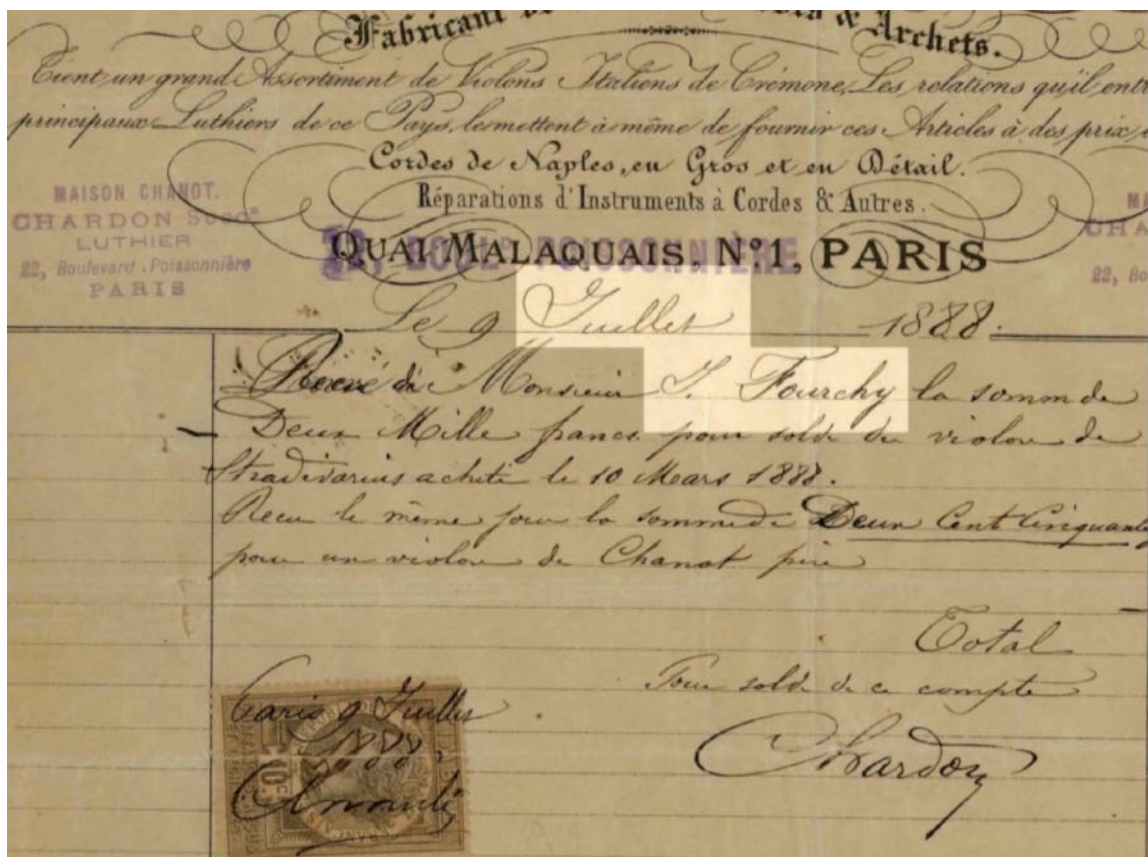 Fabricant de & Archets.
Tient un grand Assortiment de Violons Italiens de Crémone, Les relations qu'il entr
principaux Luthiers de ce Pays, le mettent à même de fournir ces Articles à des prix
Cordes de Naples, en Gros et en Détail.
Réparations d'Instruments à Cordes & Autres.
MAISON CHANOT.
CHARDON SUCCR
LUTHIER
22, Boulevard Poissonnière
PARIS
MA
CHA
22, Bo
QUAI MALAQUAIS, No 1, PARIS
22, BOULD POISSONNIÈRE
Le 9 Juillet 1888.
de Monsieur J. Fourchy la somm de
Deux Mille francs pour solde du violon de
Stradivarius acheté le 10 Mars 1888.
Recu le même jour la somme de Deux Cent Cinquante
pour un violon de Chanot père
Total
Pour solde de ce compte
Chardon
Paris 9 Juillet
1888
10c